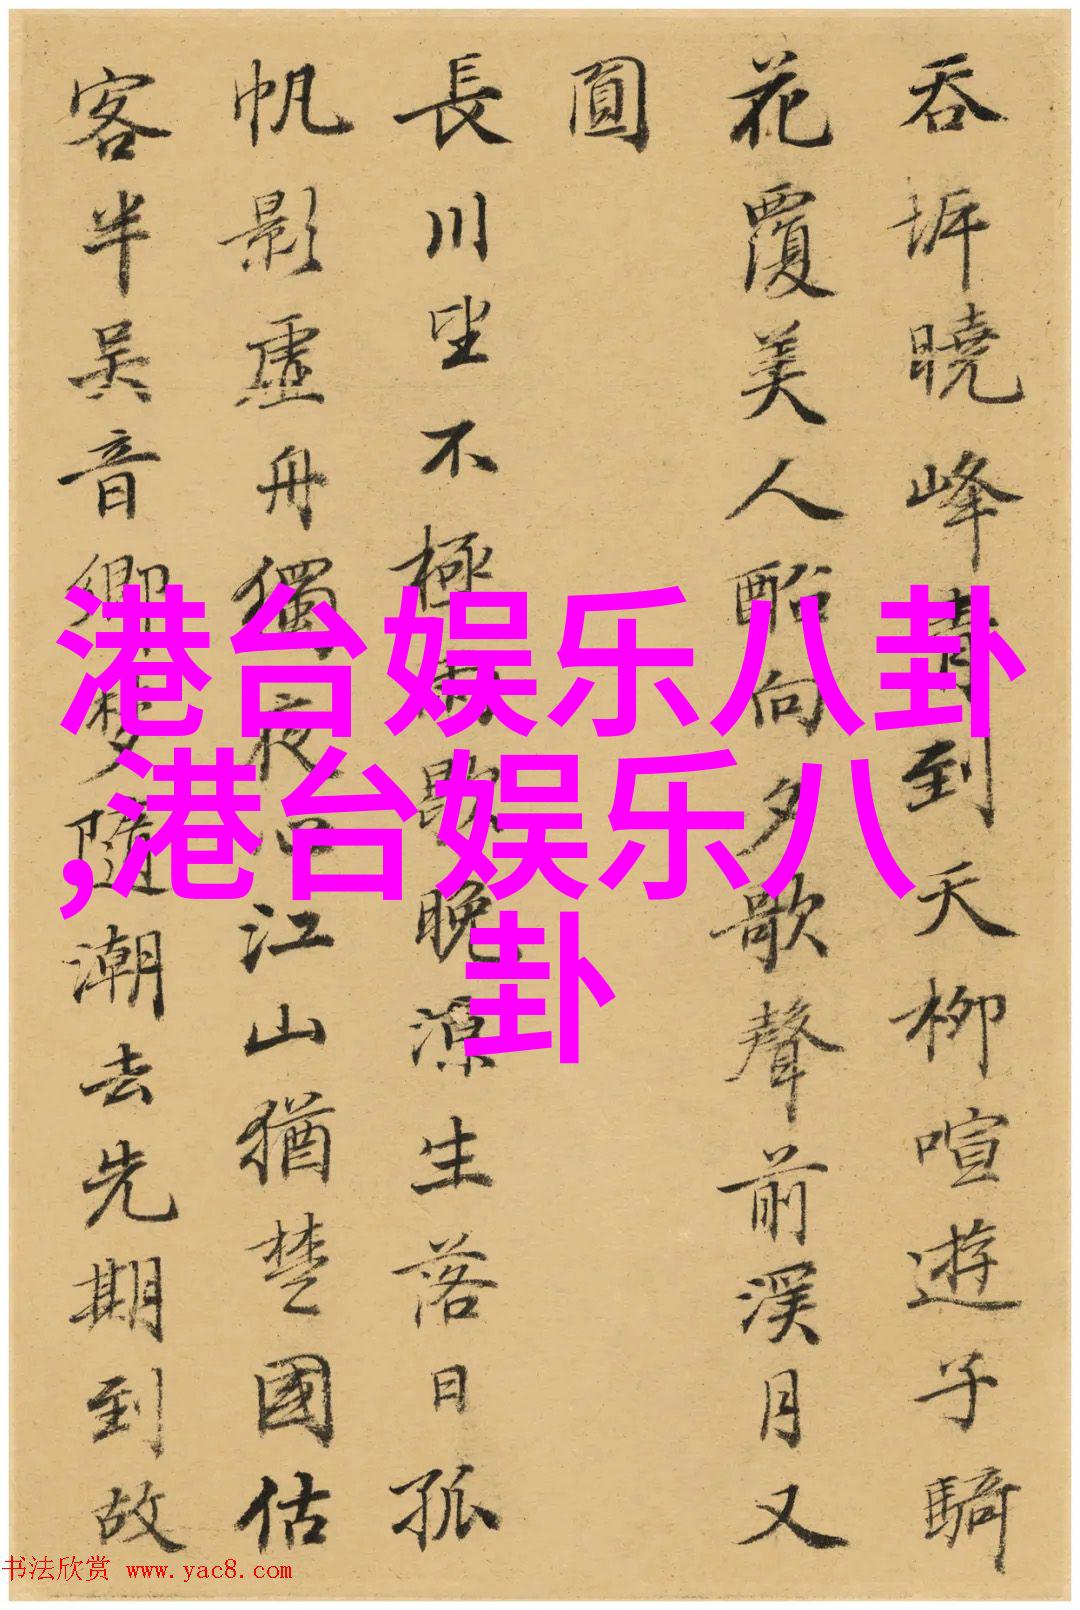 吞坼曉峰青到天柳喧遊子騎
花覆美人船向夕歌聲前溪月又
圓
長川坐不極雨歇晚涼生落日孤
帆影虛舟獨夜心江山猶楚國估
客半吳音鄉夢隨潮去先期到故
港台娱乐八卦
,港台娱乐八
卦
书法欣赏 www.yac8.com